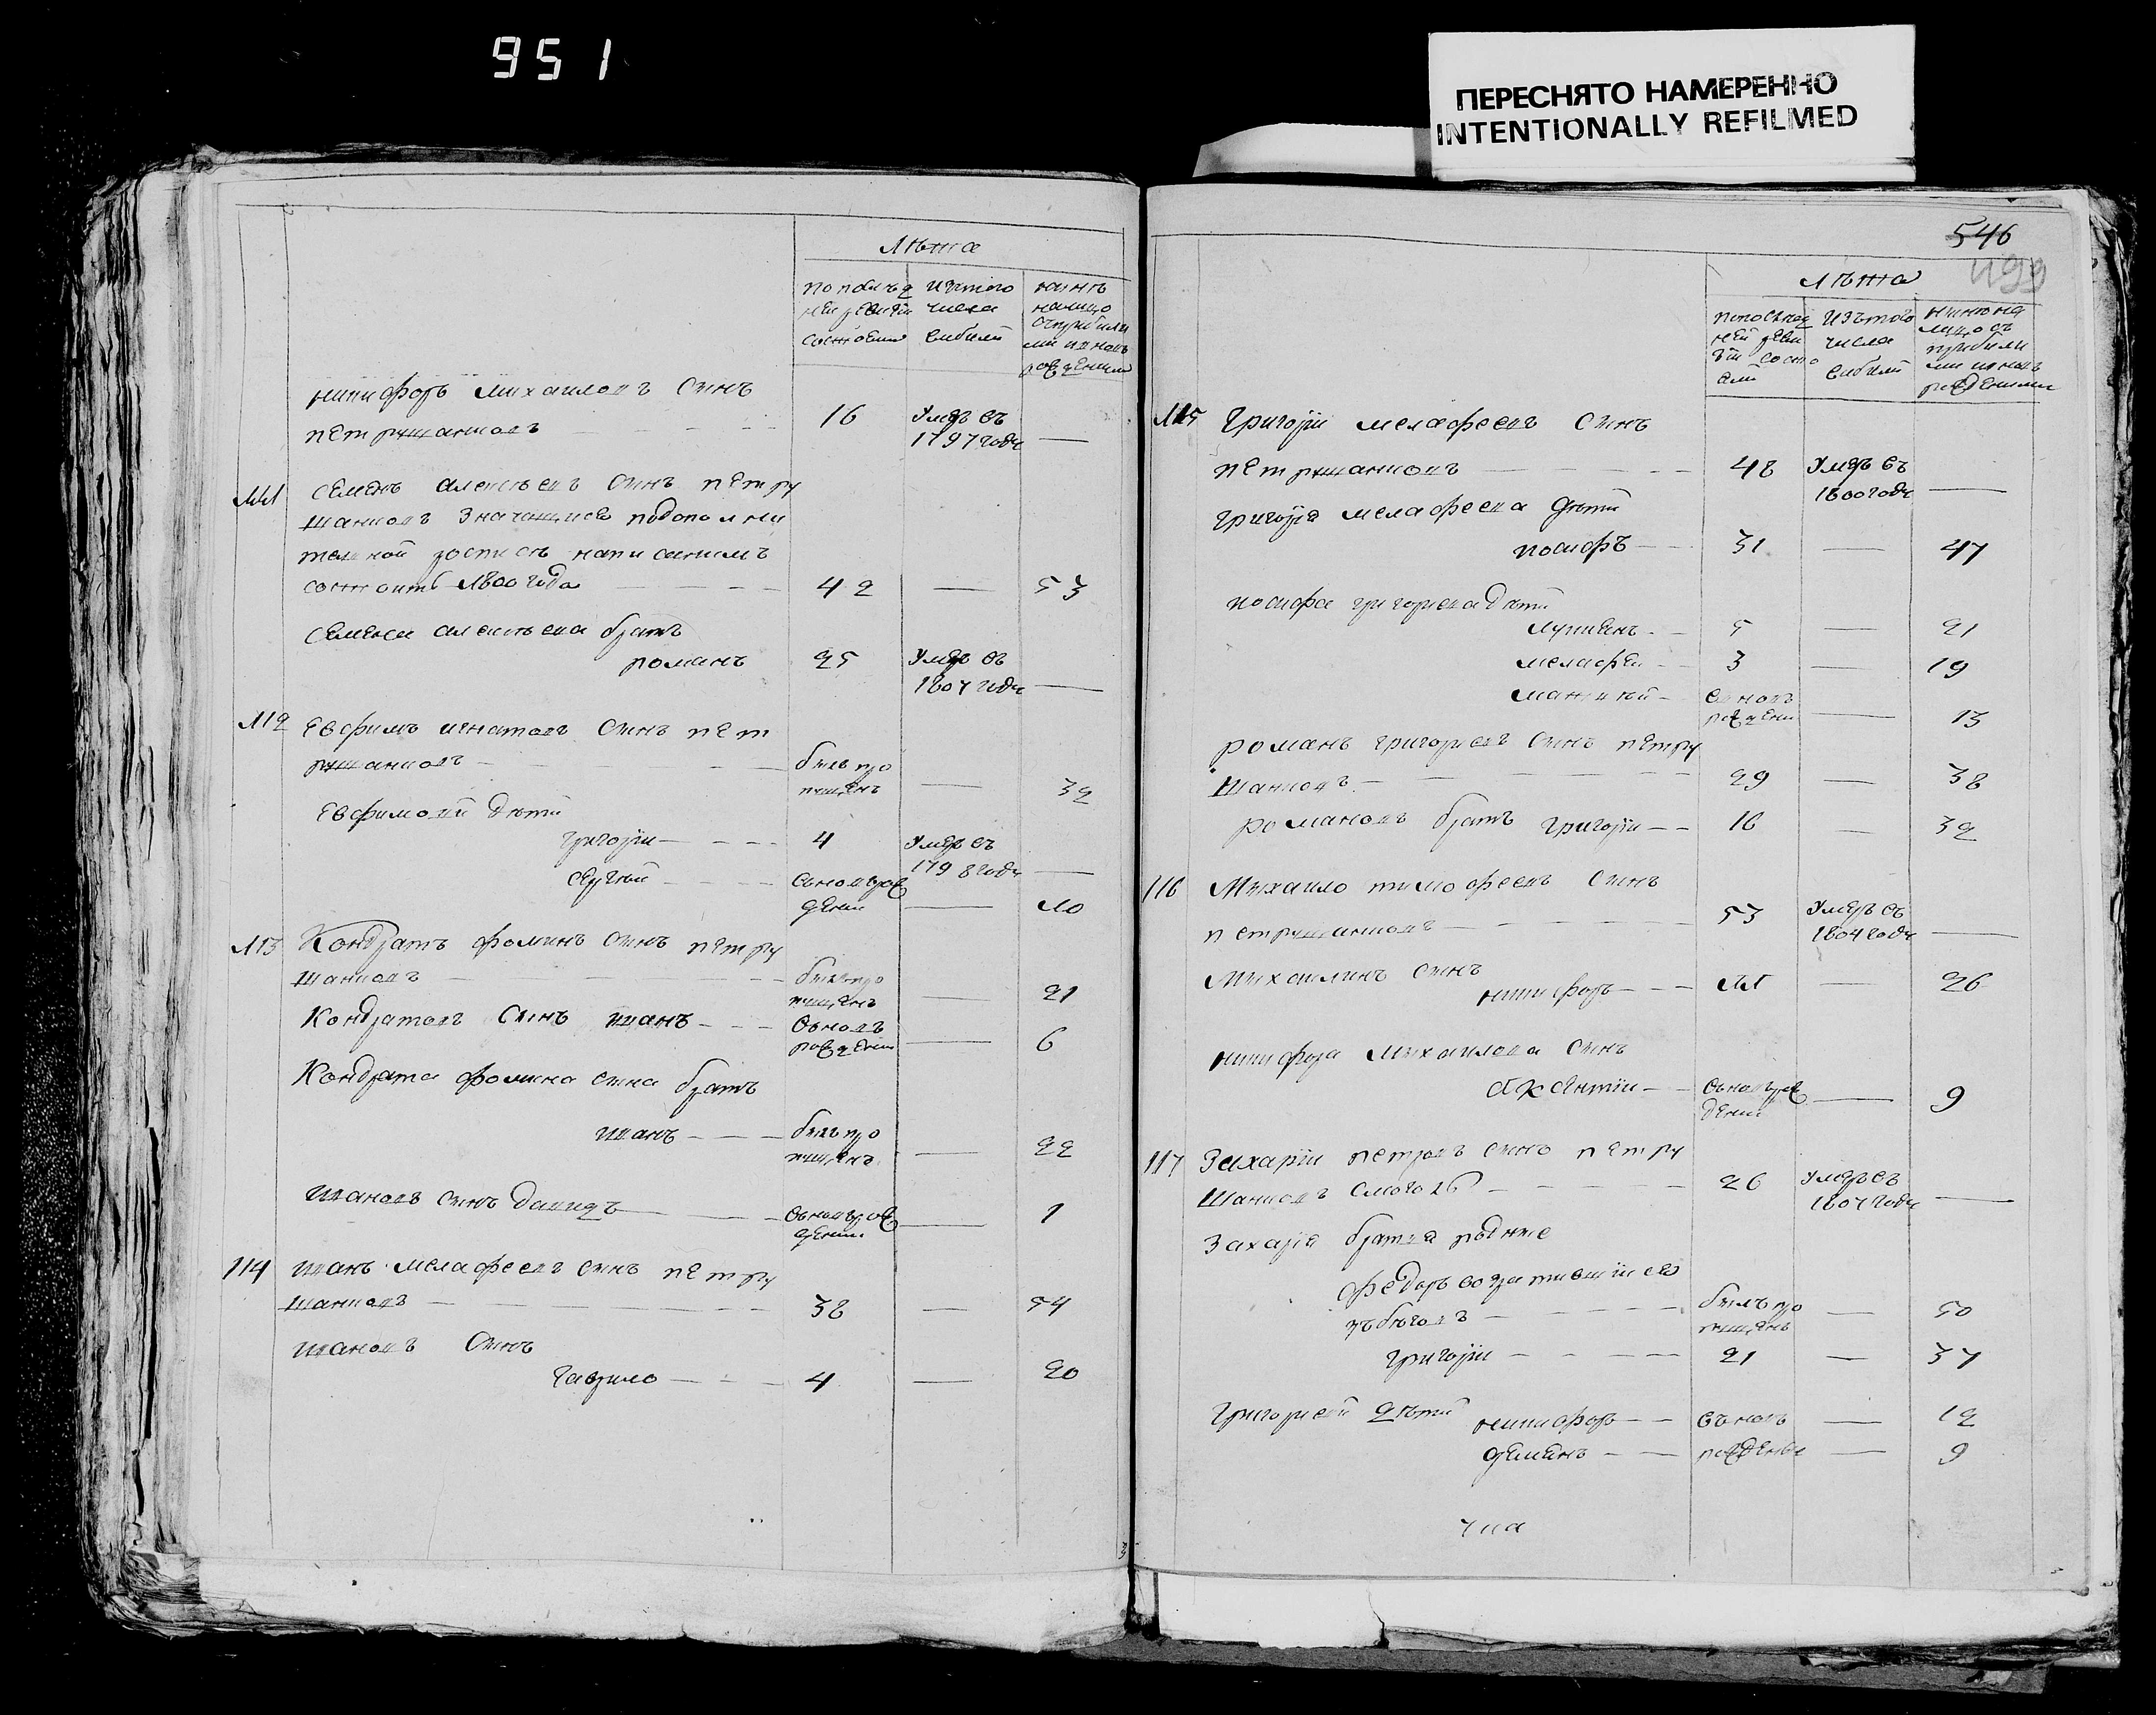 951
ПЕРЕСНЯТО НАМЕРЕННО
INTENTIONALLY REFILMED
Лѣта
по послѣд изтого нынѣ
ней ревизи числа налицо
состояли выбыли
никифоръ михаиловъ сынъ
петрушанковъ 16 Умеръ въ
1797 годе
111 семенъ алексѣевъ сынъ петру
шанковъ значущися подополни
тельной росписѣ написанымъ
1800 года 42 53
семена алексѣева братъ
романъ 25 Умеръ въ
1807 годе
112 Евфимъ игнатовъ сынъ пет
рушанковъ былъ про
пущенъ 32
Евфимовы дѣти
григори 4 Умеръ въ
1798 годе
сергѣй вновьрож
дены 10
113 Кондратъ фоминъ сынъ петру
шанковъ былъ про
пущенъ 21
Кондратовъ сынъ иванъ вновь
рождены 6
Кондрата фомина сына братъ
иванъ былъ про
пущенъ 22
ивановъ сынъ давидъ вновьрож
дены 1
114 иванъ малафеевъ сынъ петру
шанковъ 38 54
ивановъ сынъ
гаврило 4 20
546
499
лѣта
изътого
ней реви числа
выбыли
115 Григори малафеевъ сынъ
петрушанковъ 48 Умеръ въ
1800 годе
григорія малафеева дѣти
иосифъ 31 47
иосифа григорьева дѣти
лукиенъ 5 21
малафеи 3 19
вновь
рождены 13
романъ григорьевъ сынъ петру
шанковъ 29 38
романовъ братъ григори 16 32
116 Михаило тимофеевъ сынъ
петрушанковъ 53 Умеръ въ
1804 годе
Михаилинъ сынъ
никифоръ 11 26
никифора михаилова сынъ
вновьрож
дены 9
117 Захарiи петровъ сынъ петру
шанковъ 26 Умеръ въ
1807 годе
захарiя братья родные
федоръ возратившiися
зъбѣговъ былъ про
пущенъ 50
григорiи 21 37
григорьевы дѣти никифоръ вновь 12
демѣнъ рождены 9